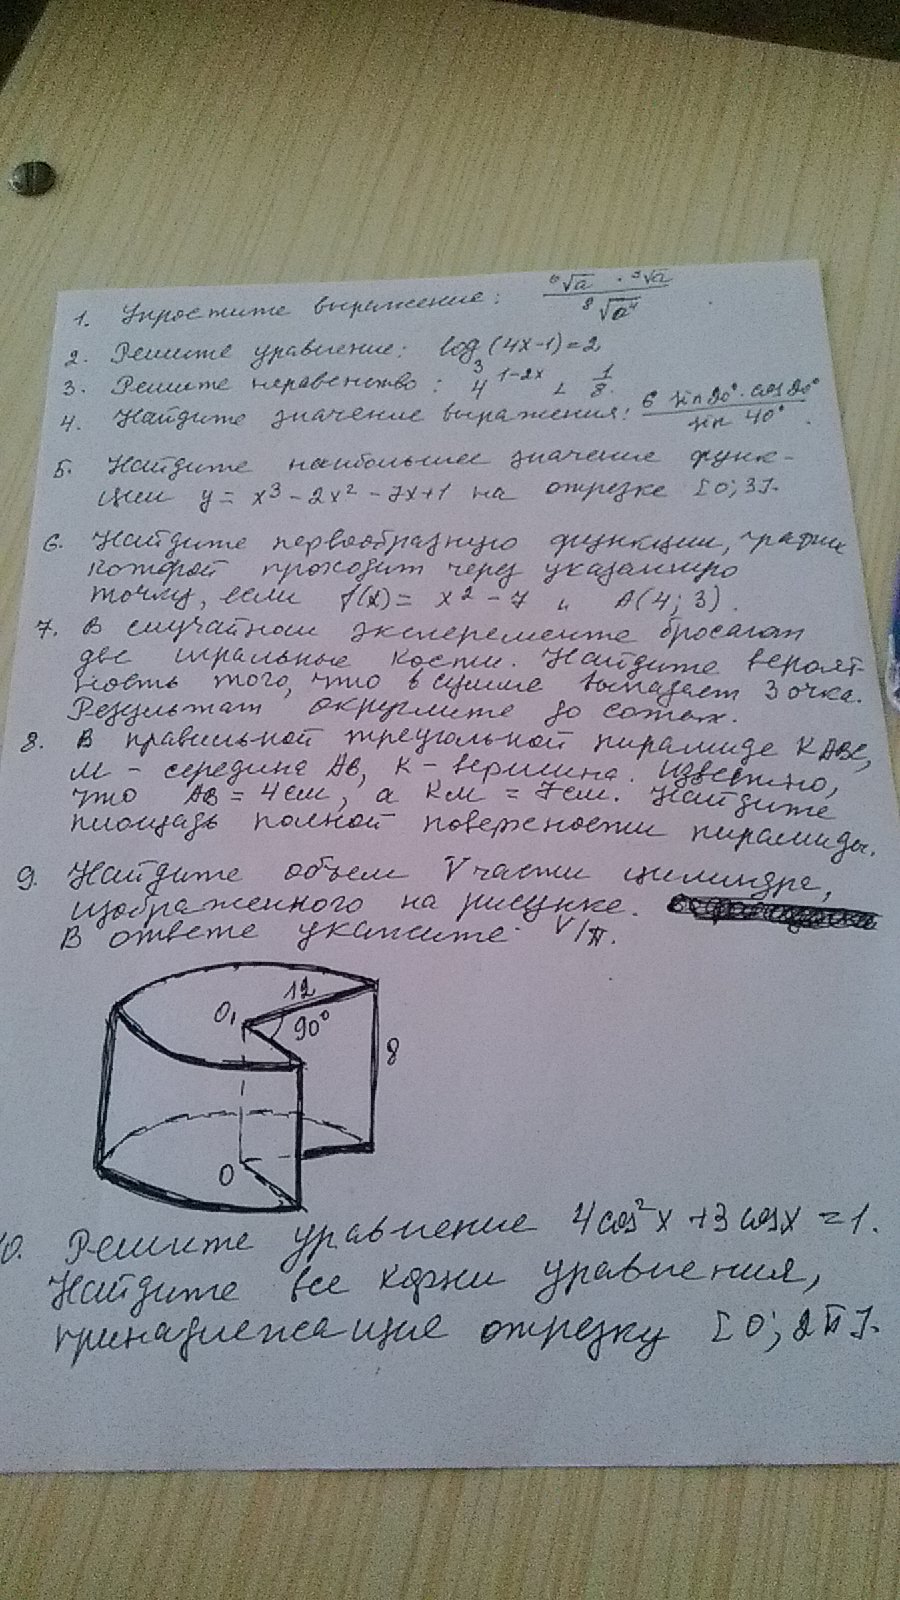 1. Упростите выражение: ⁶√a · ³√a / ⁸√a⁴
2. Решите уравнение: log₃(4x-1)=2
3. Решите неравенство: 4^(1-2x) < 1/8.
4. Найдите значение выражения: 6 sin20°·cos20° / sin 40°.
5. Найдите наибольшее значение функ-
ции y = x³ - 2x² - 7x+1 на отрезке [0; 3].
6. Найдите первообразную функции, график
которой проходит через указанную
точку, если f(x) = x² - 7 и A(4; 3).
7. В случайном эксперементе бросают
две игральные кости. Найдите вероят-
ность того, что в сумме выпадает 3 очка.
Результат округлите до сотых.
8. В правильной треугольной пирамиде KABC,
M - середина AB, K - вершина. Известно,
что AB = 4см, а KM = 7см. Найдите
площадь полной поверхности пирамиды.
9. Найдите объем V части цилиндра,
изображенного на рисунке.
В ответе укажите V/π.
12
O₁
90°
8
O
10. Решите уравнение 4cos²x +3cosx =1.
Найдите все корни уравнения,
принадлежащие отрезку [0; 2π].